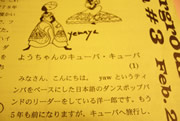 yemaya
ようちゃんのキューバ・キューバ
(1)
みなさん、こんにちは。 yaw というティ
ンバをベースにした日本語のダンスポップバ
ンドのリーダーをしている洋一郎です。もう
5年も前になりますが、キューバへ旅行し、
#3 Feb. 2